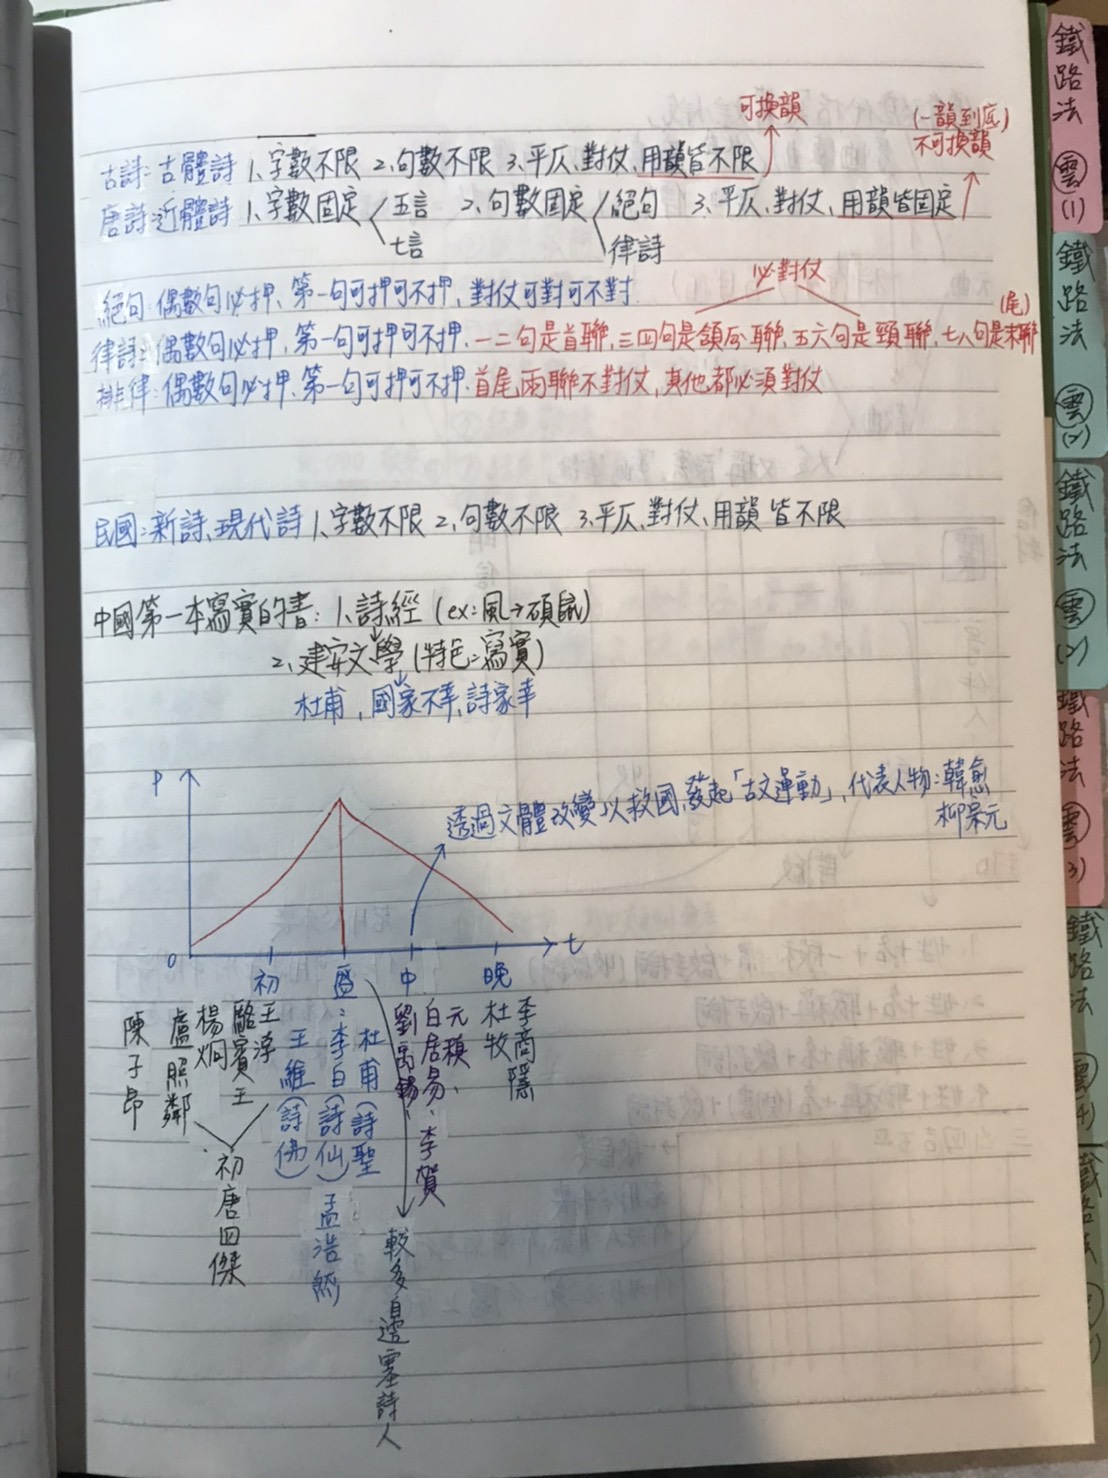 可換韻
(一韻到底)
不可換韻
古詩:古體詩 1、字數不限 2、句數不限 3、平仄、對仗、用韻皆不限
唐詩:近體詩 1、字數固定 五言 2、句數固定 絕句 3、平仄、對仗、用韻皆固定
七言 律詩
必對仗
絕句:偶數句必押、第一句可押可不押,對仗可對可不對
(尾)
律詩:偶數句必押、第一句可押可不押.一二句是首聯,三四句是頷聯,五六句是頸聯,七八句是末聯
排律:偶數句必押、第一句可押可不押.首尾兩聯不對仗,其他都必須對仗
民國:新詩、現代詩 1、字數不限 2、句數不限 3、平仄、對仗、用韻皆不限
中國第一本寫實的書:1、詩經(ex:風→碩鼠)
2、建安文學(特色:寫實)
杜甫,國家不幸,詩家幸
P
透過文體改變以救國,發起「古文運動」,代表人物:韓愈
柳宗元
0
t
初 盛 中 晚
王浡
駱賓王
楊炯
盧照鄰
初唐四傑
陳子昂
杜甫(詩聖)
李白(詩仙)
王維(詩佛)
孟浩然
較多邊塞詩人
元稹、
白居易、李賀
劉禹錫
李商隱
杜牧
鐵路法 雲(1)
鐵路法 雲(2)
鐵路法 雲(2)
鐵路法 雲(3)
鐵路法 雲(4)
鐵路法